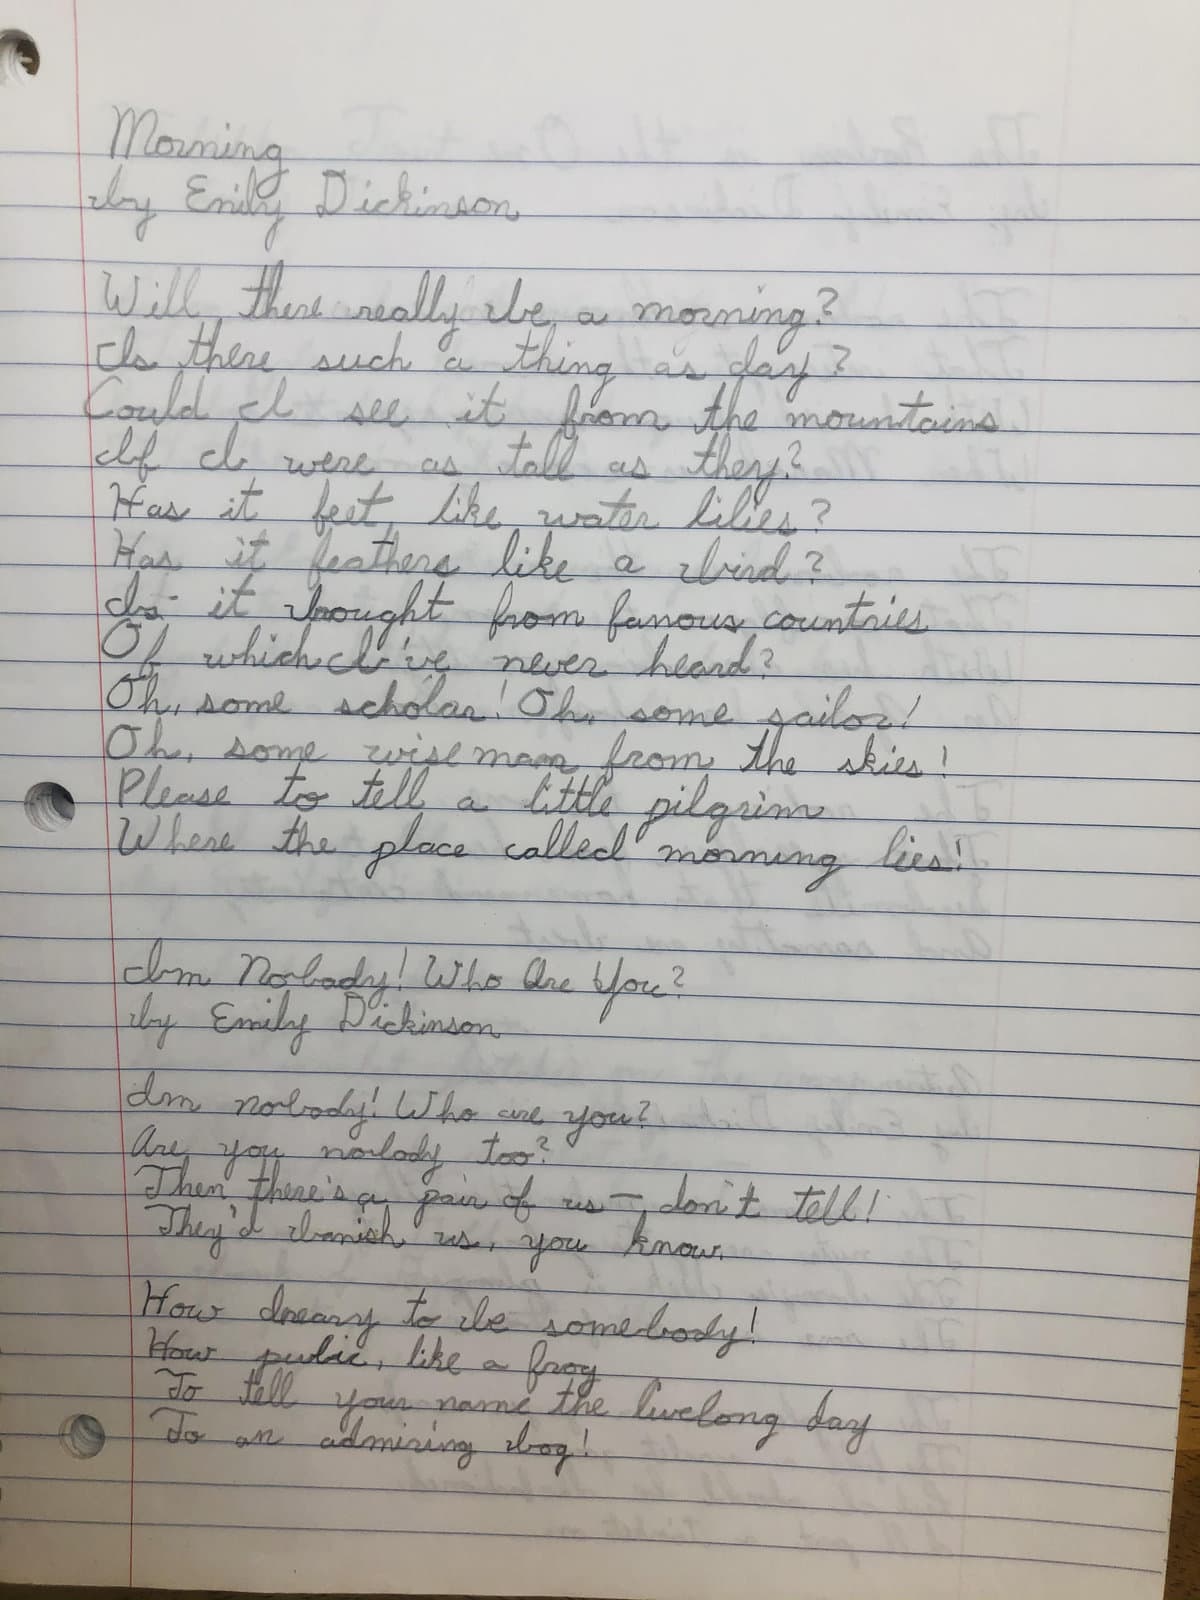 Morning
by Emily Dickinson
Will there really be a morning?
Is there such a thing as day?
Could I see it from the mountains
If I were as tall as they?
Has it feet, like water lilies?
Has it feathers like a bird?
Is it brought from famous countries
Of which I've never heard?
Oh, some scholar! Oh, some sailor!
Oh, some wise man from the skies!
Please to tell a little pilgrim
Where the place called morning lies!
Im Nobody! Who Are You?
by Emily Dickinson
Im nobody! Who are you?
Are you nobody too?
Then there's a pair of us — don't tell!
They'd banish us, you know.
How dreary to be somebody!
How pubic, like a frog
To tell your name the livelong day
To an admiring bog!